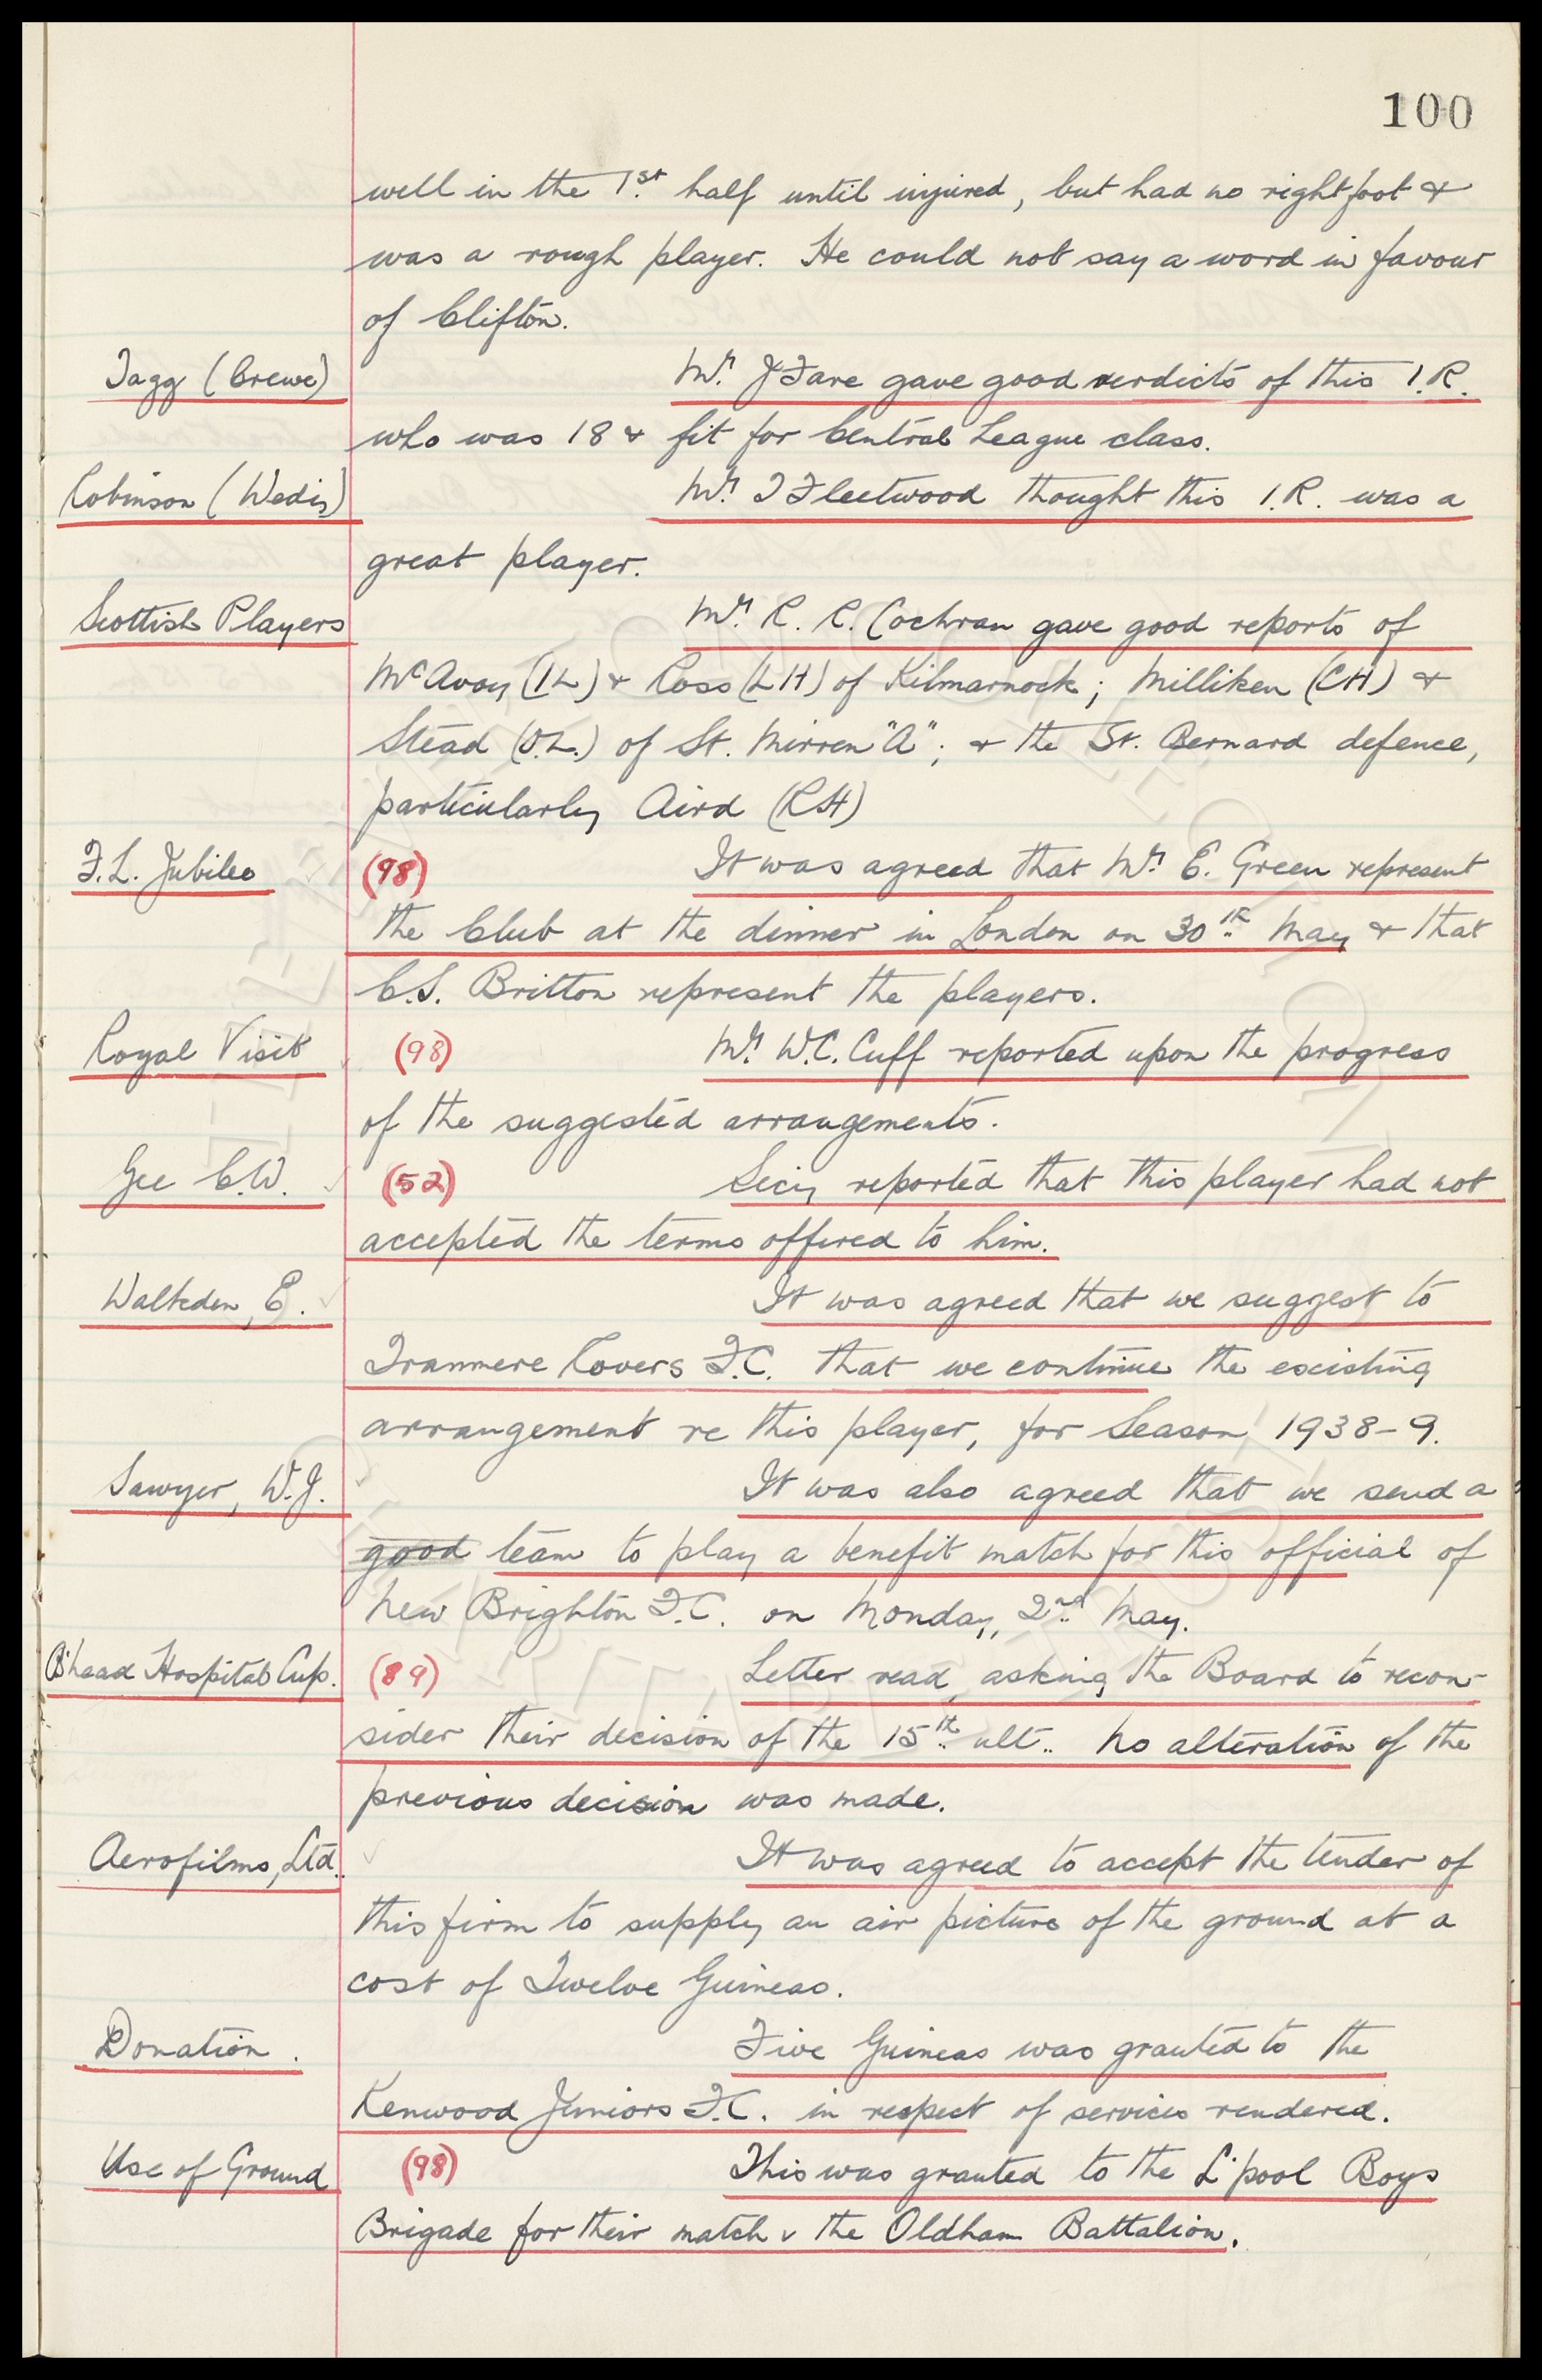 100
well in the 1st half until injured, but had no right foot &
was a rough player. He could not say a word in favour
of Clifton.
Tagg (Crewe) Mr. J Fare gave good verdicts of this I.R.
who was 18 & fit for Central League class.
Robinson (Wedis) Mr. T Fleetwood thought this I.R. was a
great player.
Scottish Players Mr. R. R. Cochran gave good reports of
McAvoy (IL) & Ross (LH) of Kilmarnock; Milliken (CH) &
Stead (O.L.) of St. Mirren "A"; & the St. Bernard defence,
particularly Aird (RH)
F.L. Jubilee (98) It was agreed that Mr. E. Green represent
the Club at the dinner in London on 30th May & that
C.S. Britton represent the players.
Royal Visit (98) Mr. W.C. Cuff reported upon the progress
of the suggested arrangements.
Gee C.W. (52) Secy reported that this player had not
accepted the terms offered to him.
Walkden, E. It was agreed that we suggest to
Tranmere Rovers F.C. that we continue the existing
arrangement re this player, for Season 1938-9.
Sawyer, W.J. It was also agreed that we send a
good team to play a benefit match for this official of
New Brighton F.C. on Monday, 2nd May.
B'head Hospital Cup. (89) Letter read, asking the Board to recon-
sider their decision of the 15th ult.. No alteration of the
previous decision was made.
Aerofilms, Ltd. It was agreed to accept the tender of
this firm to supply an air picture of the ground at a
cost of Twelve Guineas.
Donation. Five Guineas was granted to the
Kenwood Juniors F.C. in respect of services rendered.
Use of Ground (98) This was granted to the L'pool Boys
Brigade for their match v the Oldham Battalion.